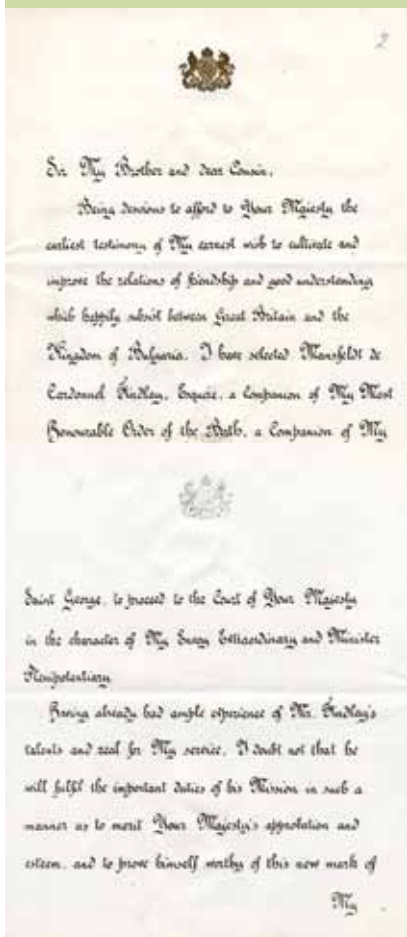 2
Sir My Brother and dear Cousin,
Being desirous to afford to Your Majesty the
earliest testimony of My earnest wish to cultivate and
improve the relations of friendship and good understanding
which happily subsist between Great Britain and the
Kingdom of Bulgaria, I have selected Mansfeldt de
Cardonnel Findlay, Esquire, a Companion of My Most
Honourable Order of the Bath, a Companion of My
Saint George, to proceed to the Court of Your Majesty
in the character of My Envoy Extraordinary and Minister
Plenipotentiary
Having already had ample experience of Mr. Findlay's
talents and zeal for My service, I doubt not that he
will fulfil the important duties of his Mission in such a
manner as to merit Your Majesty's approbation and
esteem, and to prove himself worthy of this new mark of
My